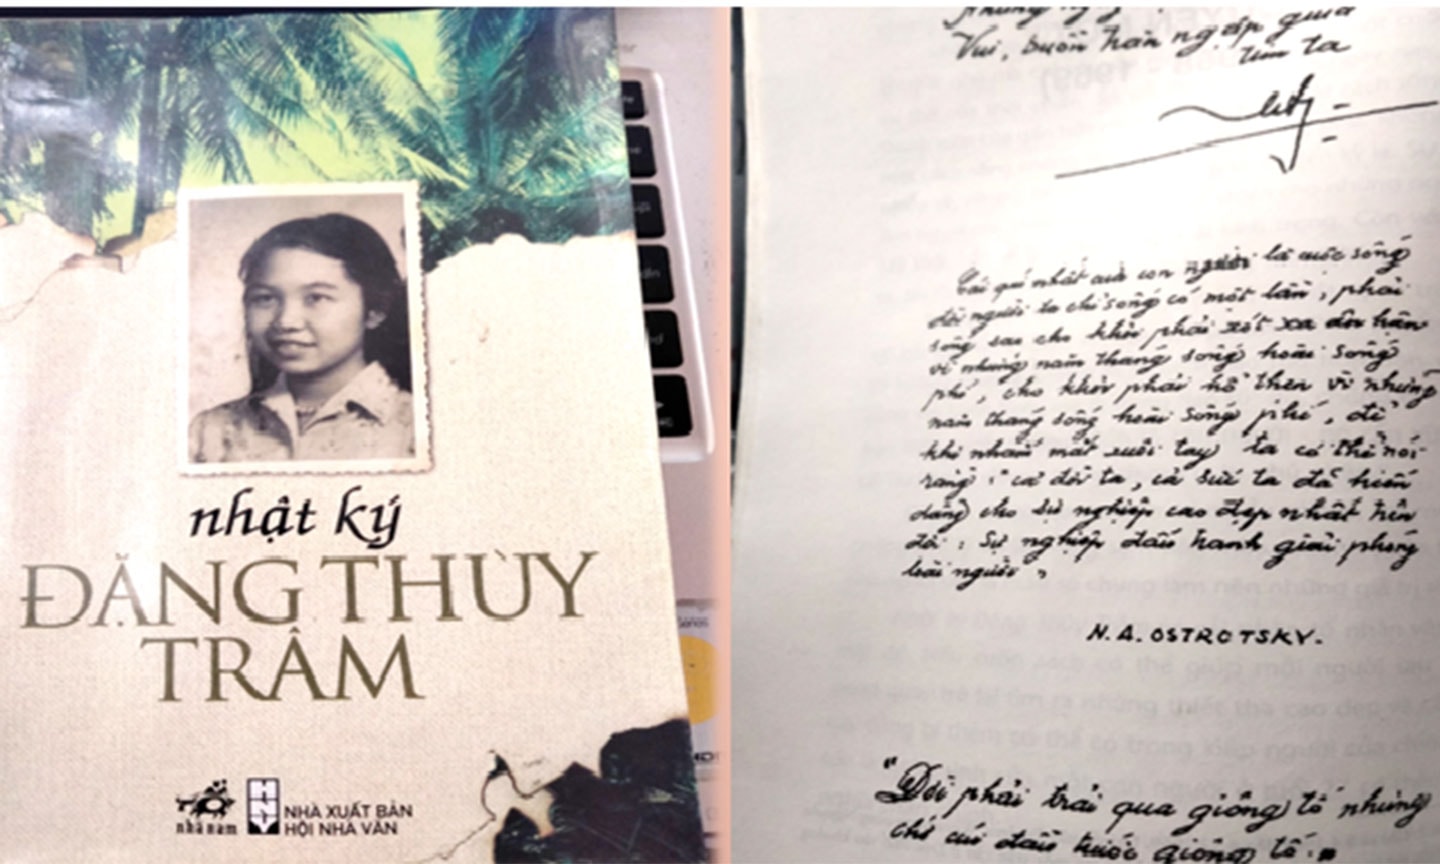 nhật ký
ĐẶNG THÙY
TRÂM
nhã nam
NHÀ XUẤT BẢN
HỘI NHÀ VĂN
Vui, buồn tràn ngập giữa
tim ta
Cái quí nhất của con người là cuộc sống
đời người ta chỉ sống có một lần, phải
sống sao cho khỏi phải xót xa ân hận
vì những năm tháng sống hoài sống
phí, cho khỏi phải hổ thẹn vì những
năm tháng sống hoài sống phí, để
khi nhắm mắt xuôi tay ta có thể nói
rằng: "cả đời ta, cả sức ta đã hiến
dâng cho sự nghiệp cao đẹp nhất trên
đời: Sự nghiệp đấu tranh giải phóng
loài người"
N.A. OSTROTSKY.
"Đời phải trải qua giông tố nhưng
chớ cúi đầu trước giông tố."